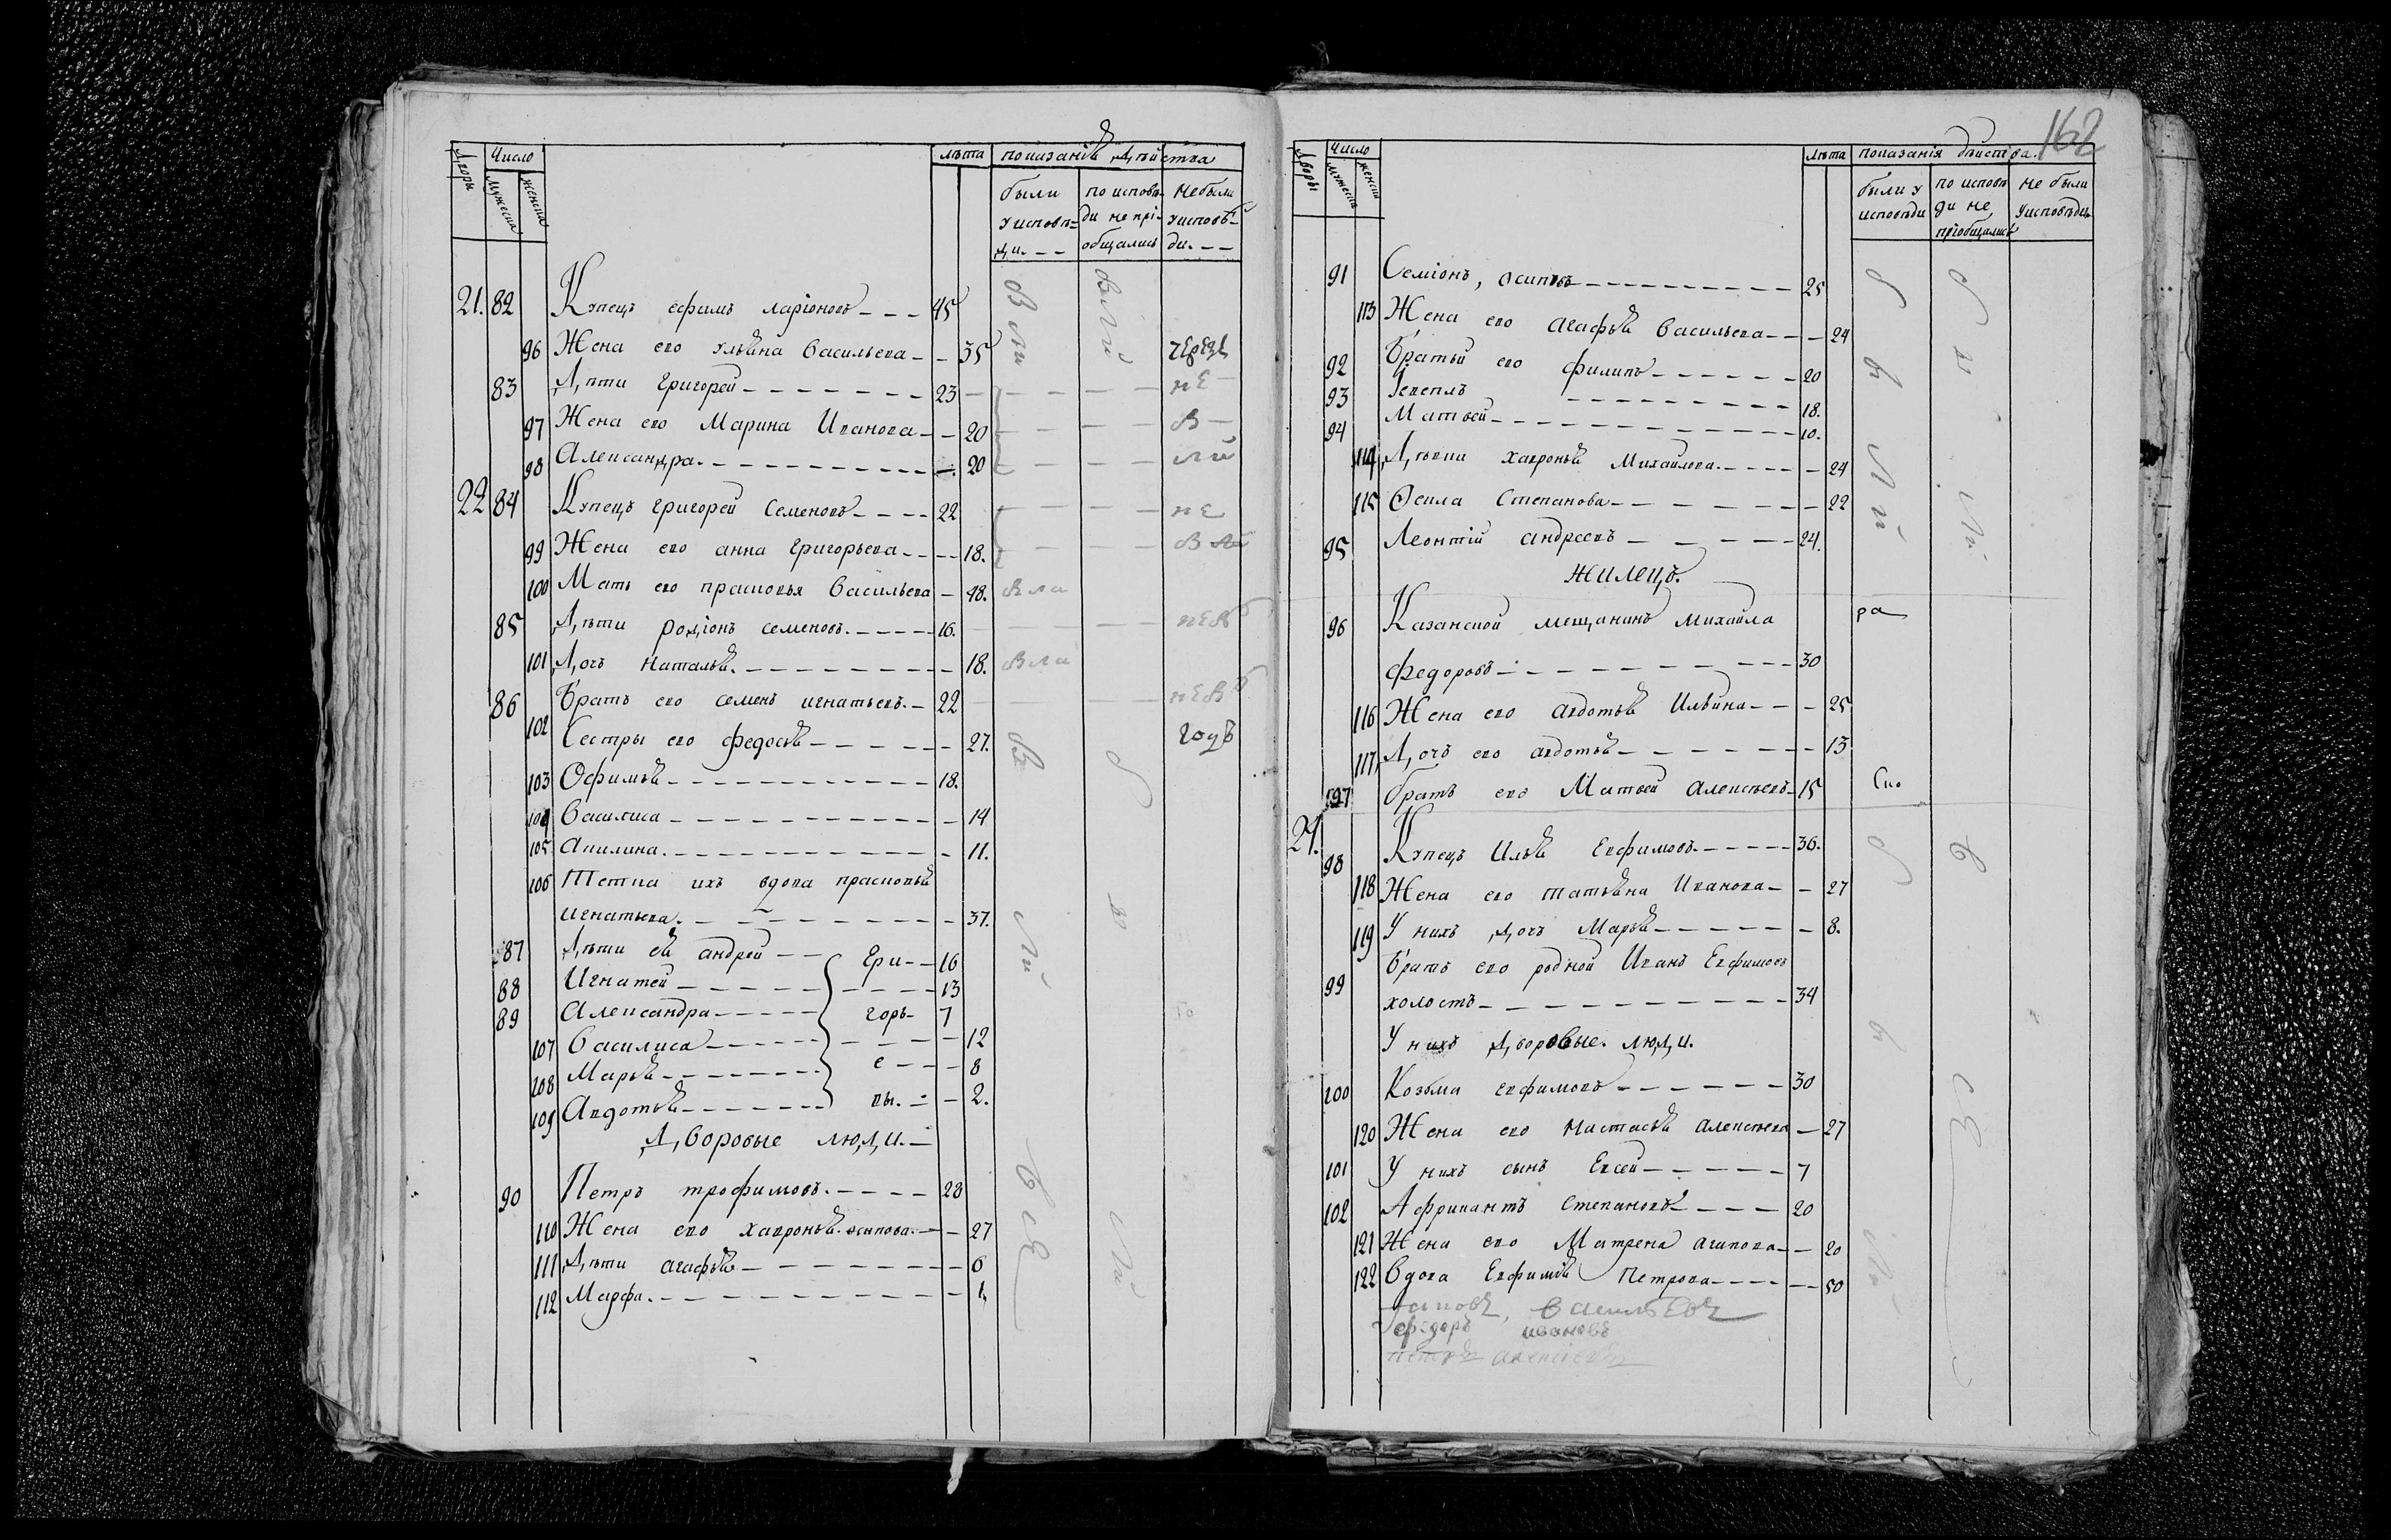 Дворы Число мужеска женска лѣта показанія дѣйства
были у исповѣди. по исповѣди не пріобщались не были у исповѣди.
21. 82 Купецъ ефимъ ларіоновъ 45
96 Жена его ульяна васильева 35
83 Дѣти григорей 23 не
97 Жена его Марина Иванова 20 в
98 Александра. 20 ли
22 84 Купецъ григорей Семеновъ 22 не
99 Жена его анна григорьева 18.
100 Мать его прасковья васильева 48. Была
85 Дѣти родіонъ семеновъ. 16.
101 Дочь наталья. 18. Была
86 Братъ его семенъ игнатьевъ. 22
102 Сестры его федосья 27. годъ
103 Офимья 18.
104 Василиса 14
105 Акилина. 11.
106 Тетка ихъ вдова прасковья
игнатьева. 37.
87 Дѣти ея андрей Гри- 16
88 Игнатей 13
89 Александра горь- 7
107 Василиса 12
108 Марья е 8
109 Авдотья вы. 2.
Дворовые люди.
90 Петръ трофимовъ. 28
110 Жена его хавронья осипова. 27
111 Дѣти агафья 6
112 Марфа. 1
162
Дворы Число мужеска женска лѣта показанія дѣйства.
были у исповѣди по исповѣди не пріобщались не были у исповѣди
91 Семіонъ, осиповъ 25
113 Жена его агафья васильева 24
92 Братья его филипъ 20
93 18.
94 Матвей 10.
114 Дѣвки хавронья Михайлова. 24
115 Фекла Степанова 22
95 Леонтій андреевъ 24.
жилецъ.
96 Казанской мещанинъ михайла
федоровъ 30
116 Жена его авдотья Ильина 25
117 Дочь его авдотья 13
97 братъ его Матвей алексѣевъ 15
24. 98 Купецъ Илья Евфимовъ. 36.
118 Жена его татьяна Иванова 27
119 У нихъ дочь Марья 8.
Братъ его родной Иванъ Евфимовъ
99 холостъ 34
У нихъ дворовые люди.
100 Козьма евфимовъ 30
120 Жена его настасья алексѣева 27
101 У нихъ сынъ Евсей 7
102 Африкантъ степановъ 20
121 Жена его Матрена агапова 20
122 Вдова Евфимія Петрова 50
васильевъ
федоръ ивановъ
петръ алексіевъ